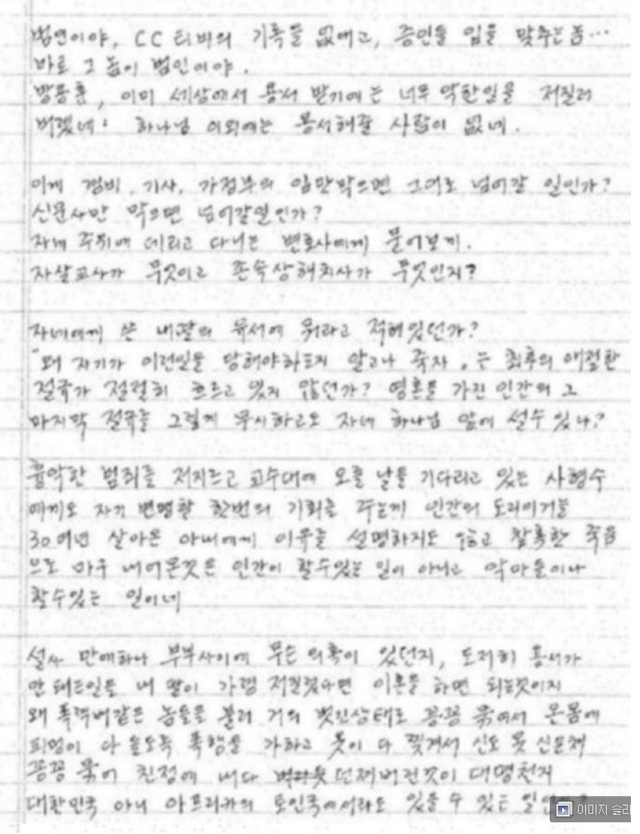 범연이야, CC 티비의 기록을 없애고, 증인들 입을 맞추는 놈...
바로 그 놈이 범인이야.
방용훈, 이미 세상에서 용서 받기에는 너무 악한일을 저질러
버렸네. 하나님 이외에는 용서해줄 사람이 없네.
이게 경비, 기사, 가정부의 입만막으면 그대로 넘어갈 일인가?
신문사만 막으면 넘어갈일인가?
자네 주위에 데리고 다니는 변호사에게 물어보게.
자살교사가 무엇이고 존속상해치사가 무엇인지?
자네에게 쓴 내딸의 유서에 뭐라고 적혀있던가?
"왜 자기가 이런일을 당해야하는지 알고나 죽자"는 최후의 애절한
절규가 절절히 흐르고 있지 않던가? 영혼을 가진 인간의 그
마지막 절규를 그렇게 무시하고도 자네 하나님 앞에 설수 있나?
흉악한 범죄를 저지르고 교수대에 오를 날을 기다리고 있는 사형수
에게도 자기 변명할 한번의 기회를 주는게 인간의 도리이거늘
30여년 살아온 아내에게 이유를 설명하지도 않고 참혹한 죽음
으로 마구 내어몬것은 인간이 할수있는 일이 아니고 악마들이나
할수있는 일이네
설사 만에하나 부부사이에 무슨 의혹이 있던지, 도저히 용서가
안 돼는일을 내 딸이 가령 저질렀다면 이혼을 하면 되는것이지
왜 폭력배같은 놈들을 불러 거의 벗긴상태로 꽁꽁 묶어서 온몸에
피멍이 다 들도록 폭행을 가하고 옷이 다 찢겨서 신도 못 신은채
꽁꽁 묶어 친정에 내다 버리듯 던져버린것이 대명천지
대한민국 아니 아프리카의 토인국에서라도 있을 수 있는 일인가?
이미지 슬라